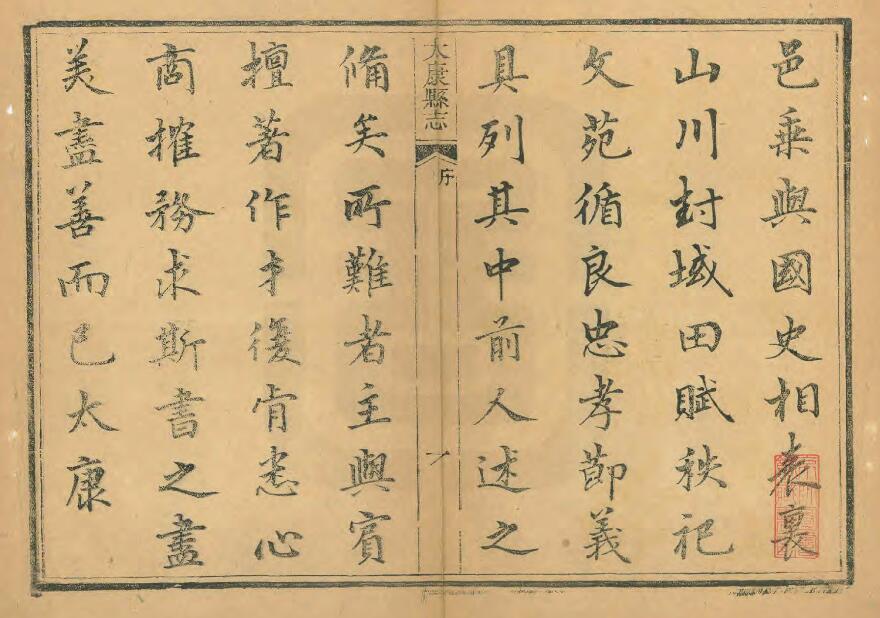 邑乘與國史相表裏
山川封域田賦秩祀
文苑循良忠孝節義
具列其中前人述之
太康縣志
序
一
備矣所難者主與賓
擅著作才復肯悉心
商搉務求斯書之盡
美盡善而已太康